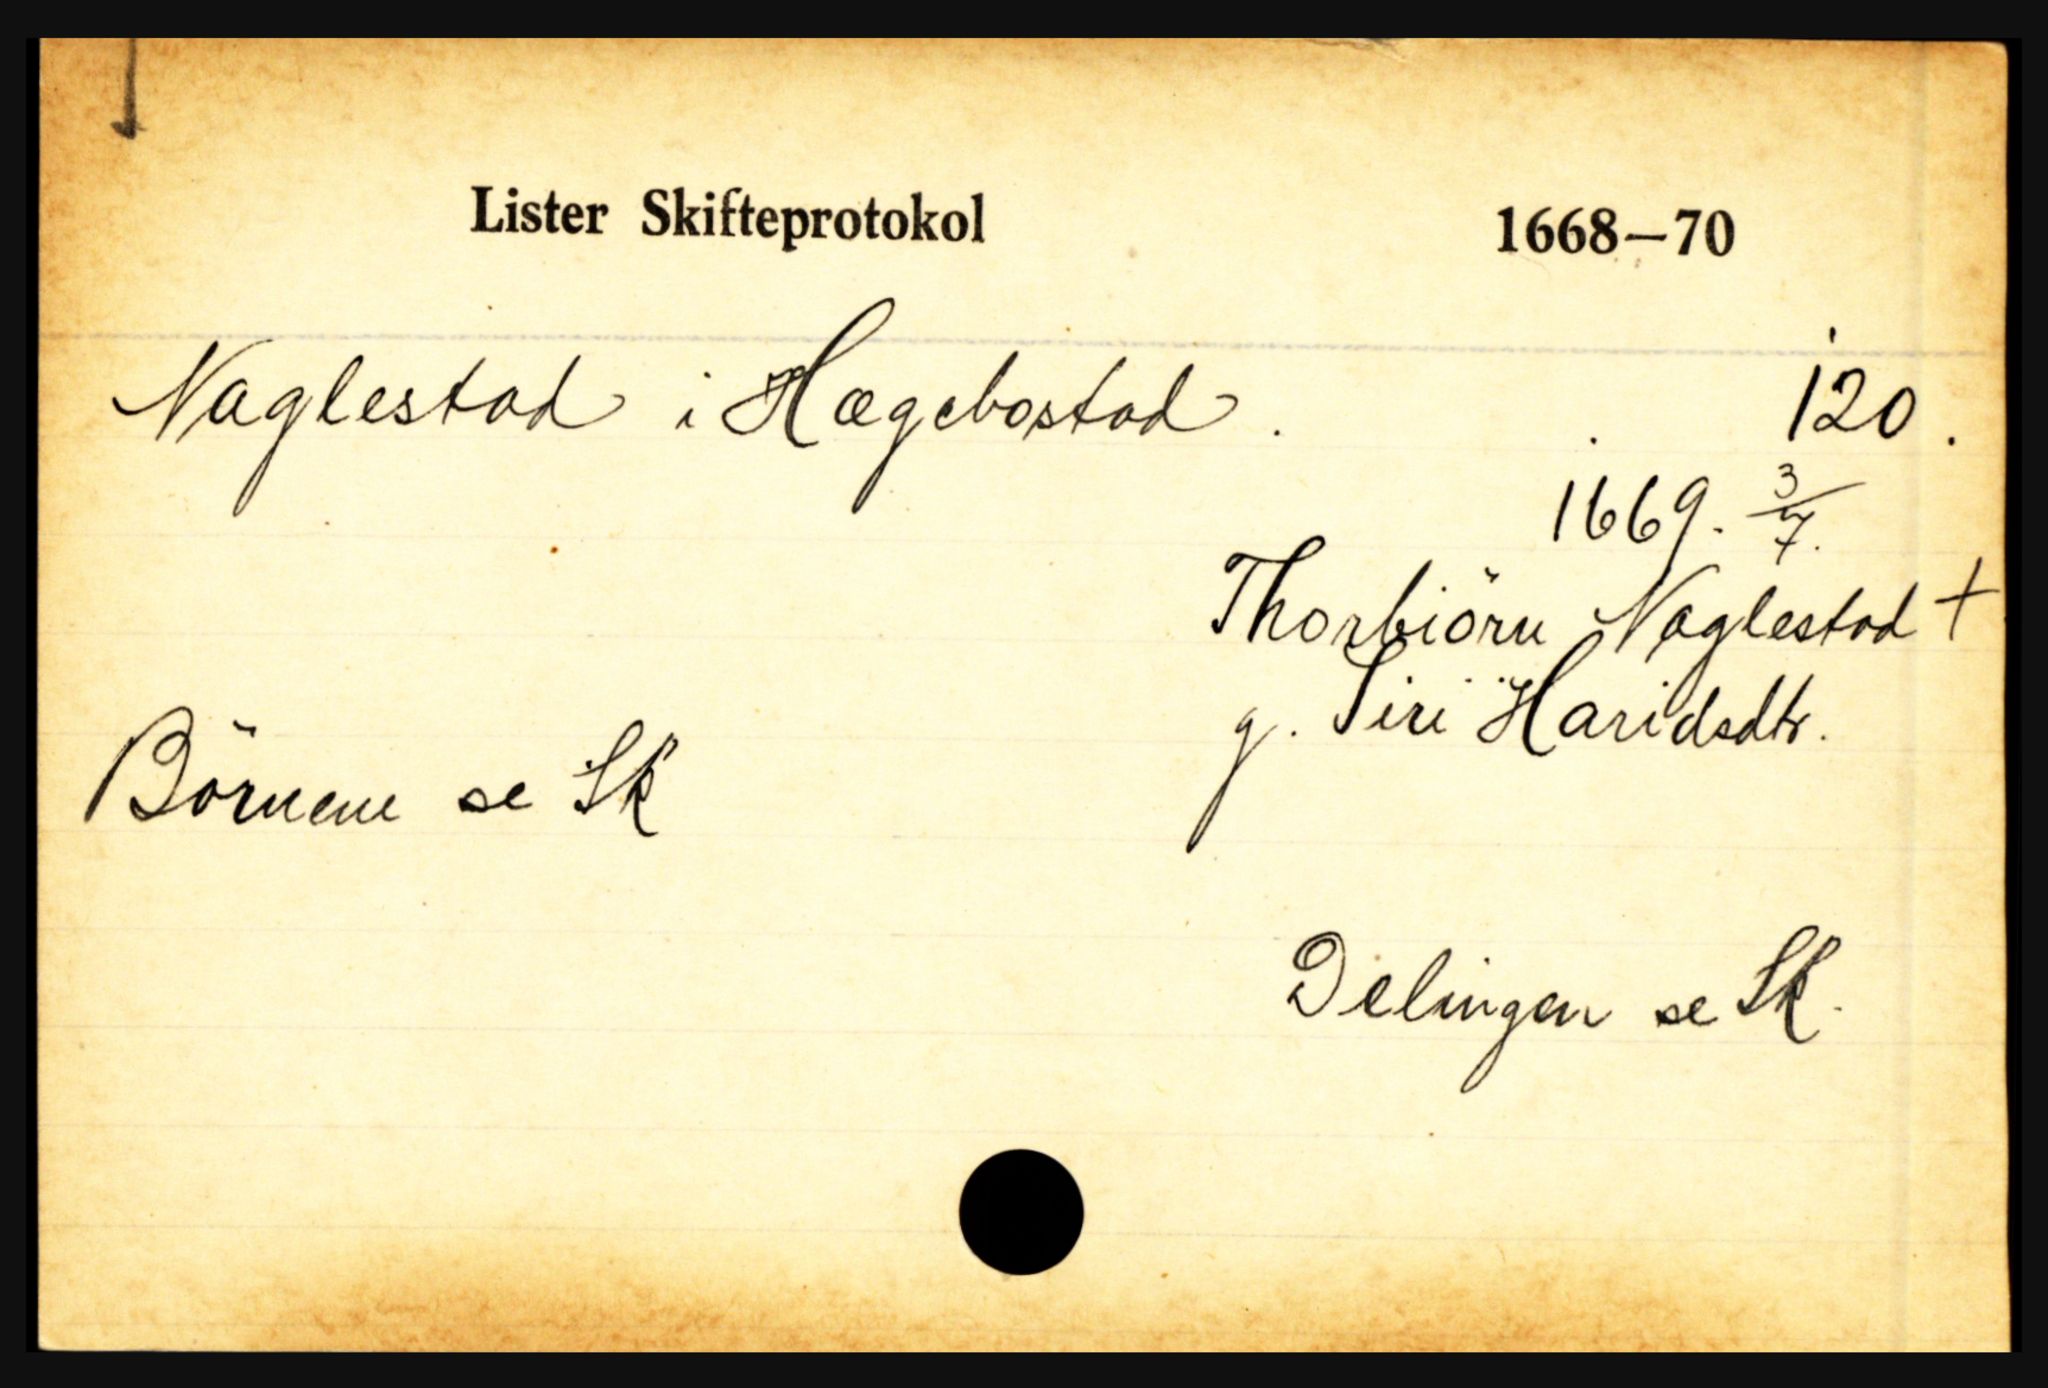 Lister Skifteprotokol 1668—70
Naglestad i Hægebostad. 120.
1669. 3/7.
Thorbiörn Naglestad +
g. Siri Haridsdtr.
Börnene se Sk
Delingen se Sk.